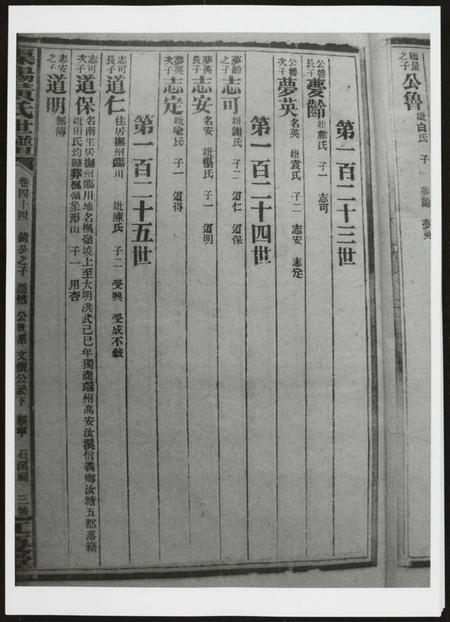 之子
公魯
妣白氏 子
夢齡 夢英
第一百二十三世
公魯長子
夢齡
妣熊氏 子一 志可
公魯次子
夢英
名英 妣袁氏 子二 志安 志定
第一百二十四世
夢齡之子
志可
妣謝氏 子二 道仁 道保
夢英長子
志安
名安 妣楊氏 子一 道明
夢英次子
志定
妣喻氏 子一 道得
第一百二十五世
志可長子
道仁
住居撫州臨川 妣陳氏 子二 受興 受成不敘
志可次子
道保
名南生居撫州臨川地名楓嶺坡上至大明洪武己巳年獨商瑞州高安汝溪信義鄉汝塘五都落籍
妣田氏均歸葬楓嶺象形山 子一 用杏
志安之子
道明
無傳
氏世譜
卷四十四
公世系 文儀公派下
石溪
三